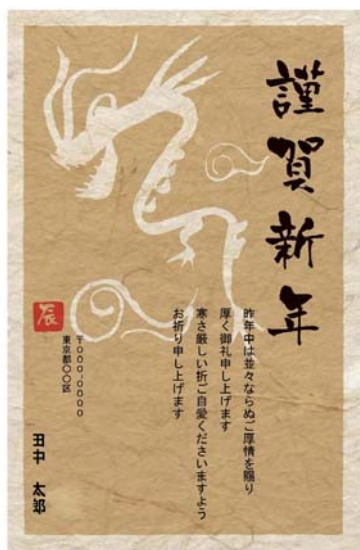 謹賀新年
昨年中は並々ならぬご厚情を賜り
厚く御礼申し上げます
寒さ厳しい折ご自愛くださいますよう
お祈り申し上げます
辰
〒000-0000
東京都〇〇区
田中 太郎